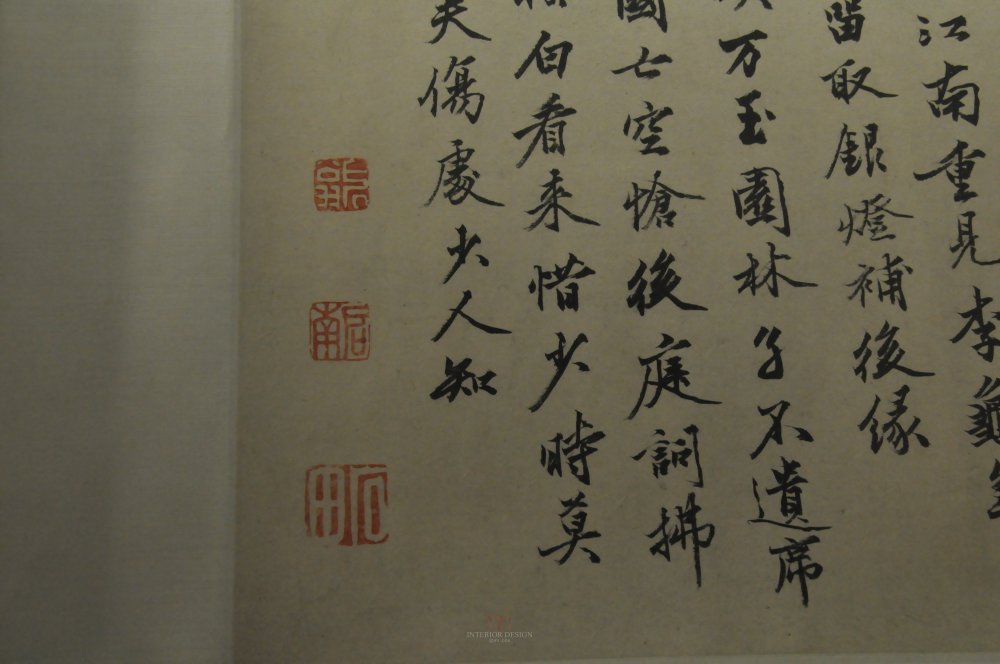 江南重見李龜
留取銀燈補後緣
万玉園林子不遺席
國亡空愴後庭詞拂
白看来惜少時莫
夫傷處少人知
启南
石田
INTERIOR DESIGN